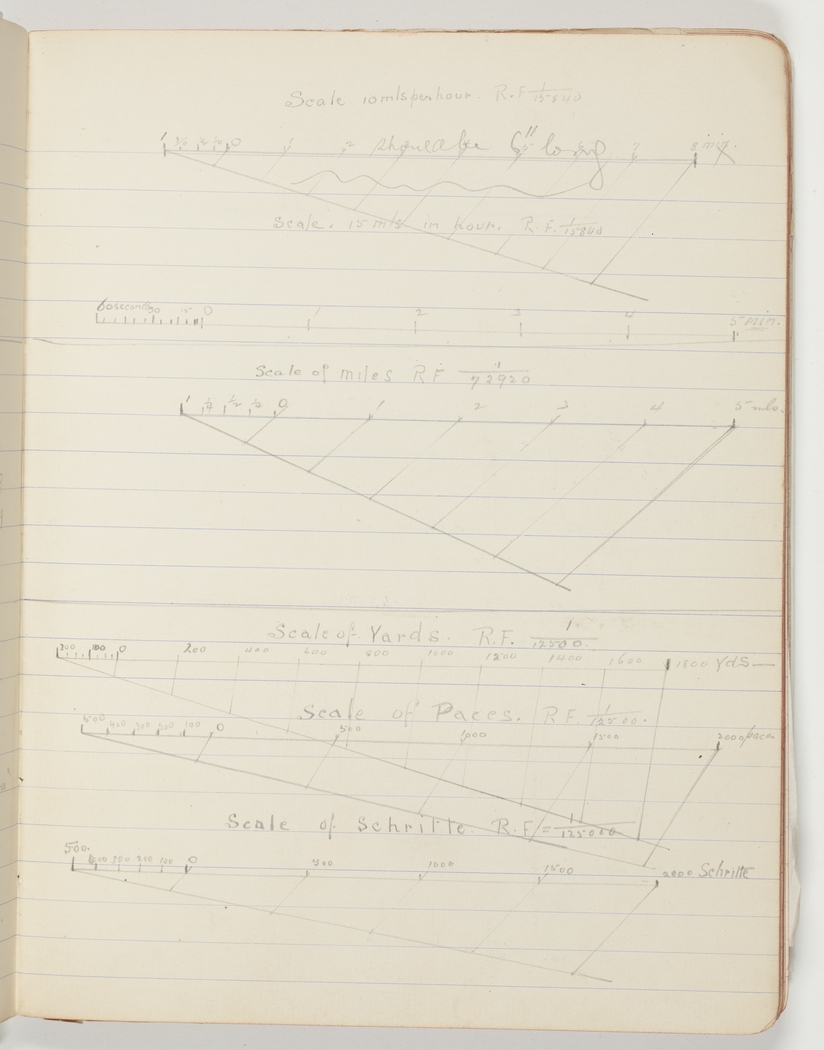 Scale 10 mls per hour. R.F 1/15840
1 3/4 1/2 1/4 0 1 2 should be 6" long 7 8 min
Scale. 15 mls in hour. R.F. 1/15840
60 seconds 30 15 0 1 2 3 4 5 min.
Scale of miles R F 1/72920
1 3/4 1/2 1/4 0 1 2 3 4 5 mls.
Scale of Yards. R.F. 1/12500.
200 100 0 200 400 600 800 1000 1200 1400 1600 1800 Yds
Scale of Paces. R.F. 1/12500.
500 400 300 200 100 0 500 1000 1500 2000 paces
Scale of Schritte. R.F = 1/125000
500. 400 300 200 100 0 500 1000 1500 2000 Schritte